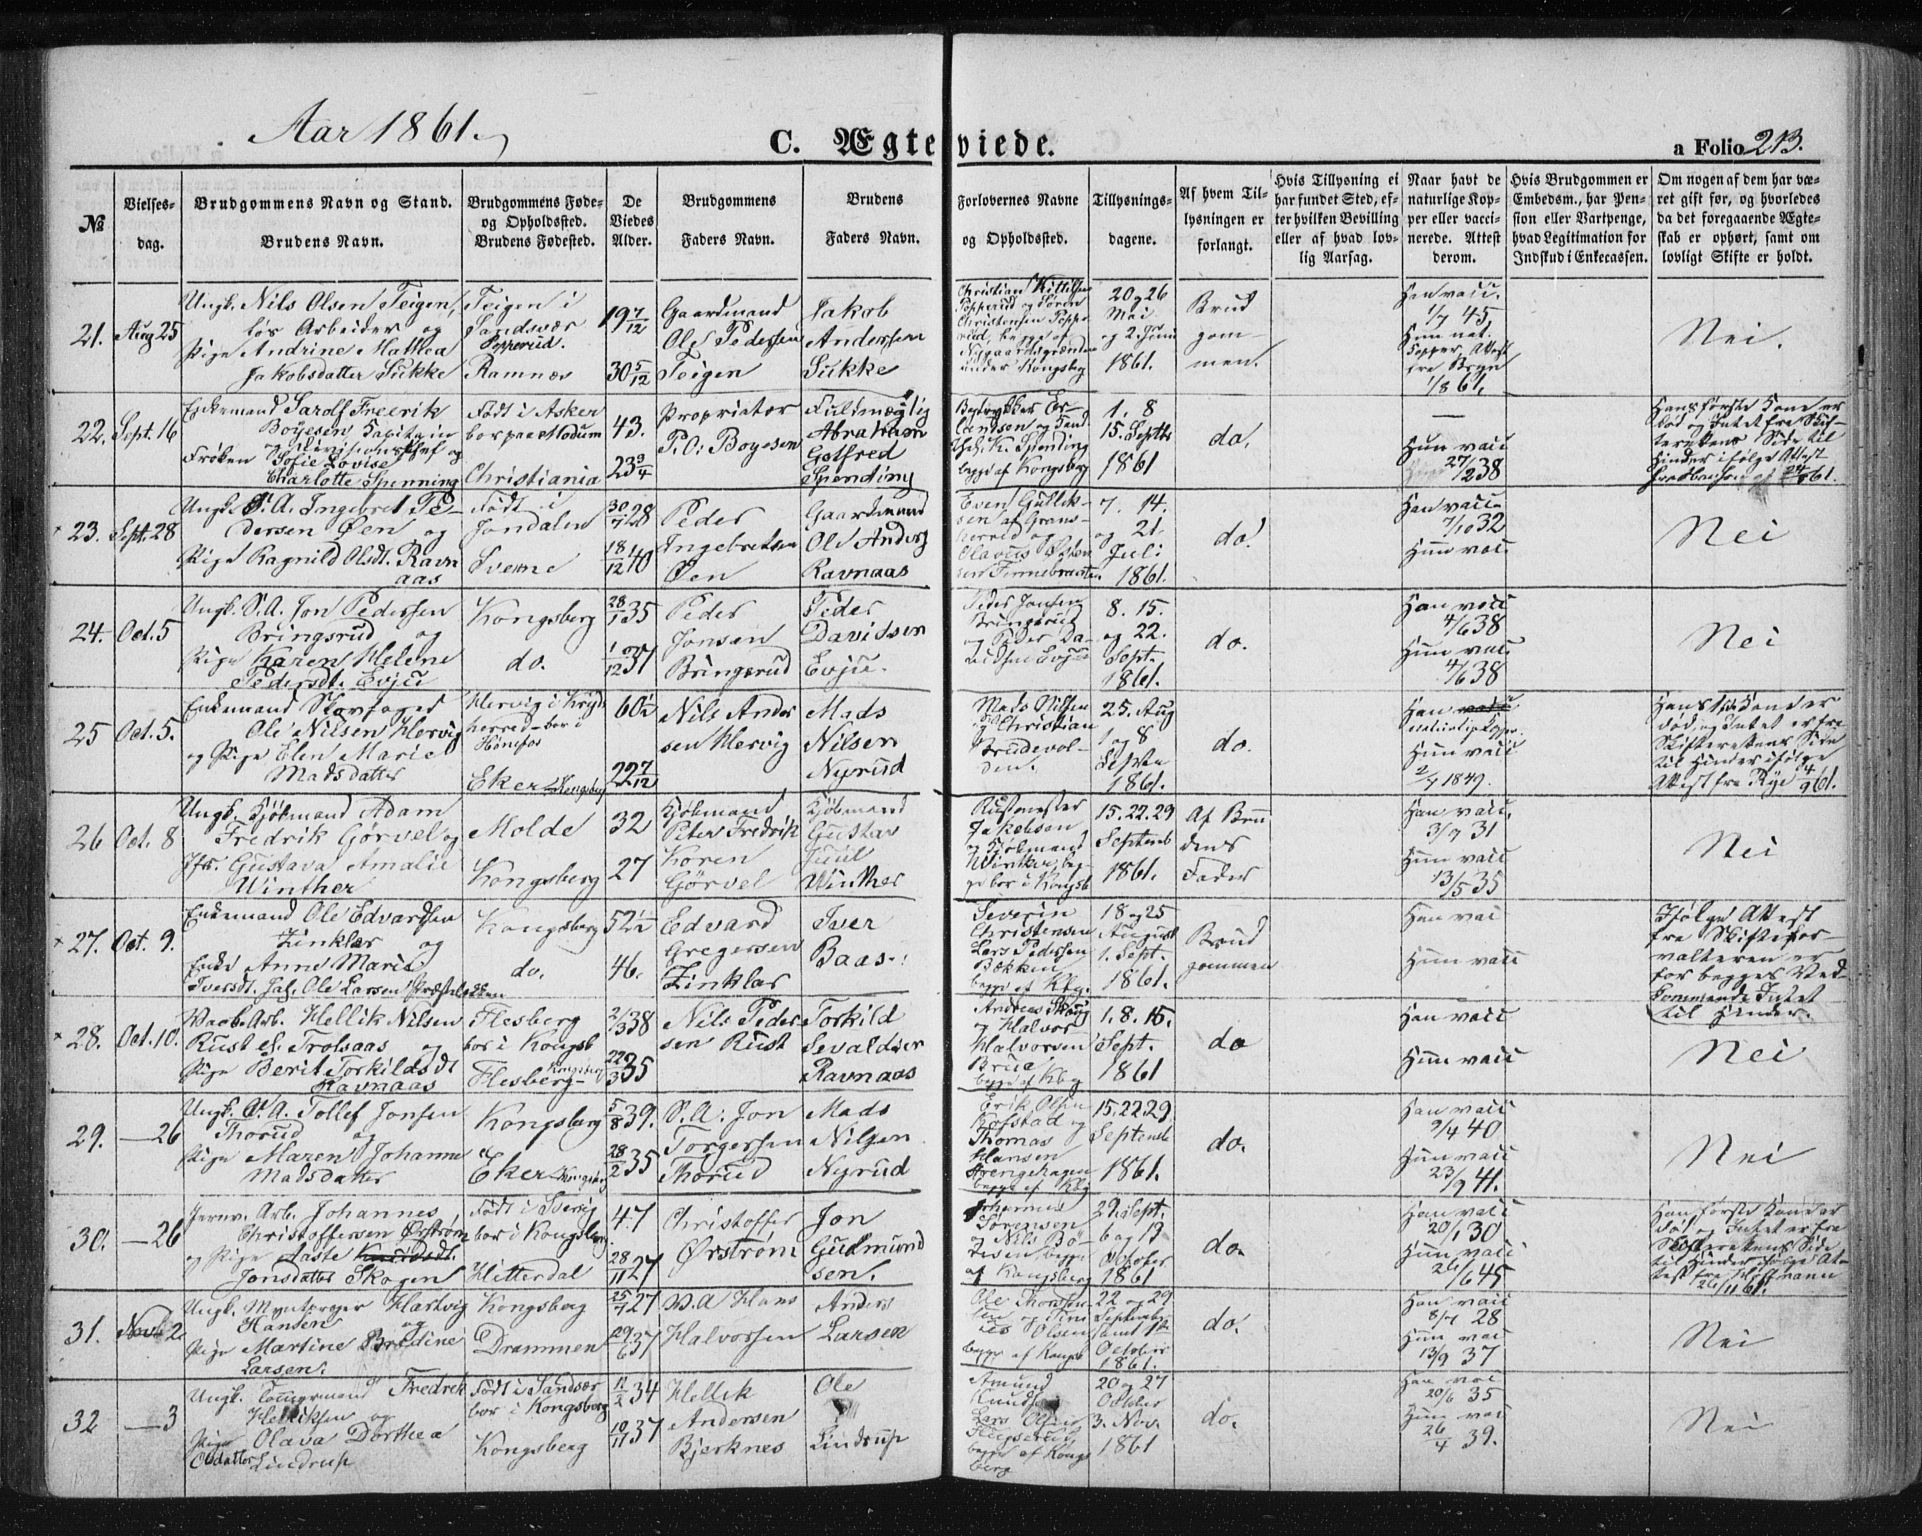 Aar 1861.
C. Ægteviede.
a Folio 213.
№
Vielses-
dag.
Brudgommens Navn og Stand.
Brudens Navn.
Brudgommens Føde-
og Opholdssted.
Brudens Fødested.
De
Viedes
Alder.
Brudgommens
Faders Navn.
Brudens
Faders Navn.
Forlovernes Navne
og Opholdsted.
Tillysnings-
dagene.
Af hvem Til-
lysningen er
forlangt.
Hvis Tillysning ei
har fundet Sted, ef-
ter hvilken Bevilling
eller af hvad lov-
lig Aarsag.
Naar havt de
naturlige Kop-
per eller vacci-
nerede. Attest
derom.
Hvis Brudgommen er
Embedsm., har Pen-
sion eller Vartpenge,
hvad Legitimation for
Indskud i Enkecassen.
Om nogen af dem har væ-
ret gift før, og hvorledes
da det foregaaende Ægte-
skab er ophørt, samt om
lovligt Skifte er holdt.
21. Aug 25
Ungk. Nils Olsen Teigen,
løs Arbeider og
Pige Andrine Mathea
Jakobsdatter Sukke
Teigen i
Sandsvær
Popperud.
Ramnes
19 7/12
30 5/12
Gaardmand
Ole Pedersen
Teigen
Jakob
Andersen
Sukke
Christian Kittilsen
Popperud og Søren
Christensen Poppe-
rud, begge af
under Kongsbg
20 og 26
Mai
og 2 Juni
1861.
Brud
gom-
men.
Han vacc.
1/7 45
Hun nat.
Kopper, Attest
fra Bryn
1/8 61.
Nei.
22. Sept. 16
Enkemand Sarolf Freerik
Boyesen Kapitain
og Divisionschef og
Frøken Sofie Lovise
Charlotte Spenning
Født i Asker
bor paa Modum
Christiania
43.
23 3/4
Proprietær
P. O. Boyesen
Fuldmægtig
Abraham
Gotfred
Spending
begge af Kongsberg
1. 8
15. Septb
1861
do.
—
Hun vacc
27/2 38
Hans første Kone er
død og Intet fra Skif-
terettens Side til
Hinder ifølge Attest
× 23. Sept. 28
Ungk. S. A. Ingebret Pe-
dersen Øen og
Pige Ragnild Olsdt. Ravn
aas
Født i
Jondalen
Svenne
30/7 28
18/12 40
Peder
Ingebretsen
Øen
Gaardmand
Ole Anders
Ravnaas
Even Gullik-
sen af Grans-
herred og
Olavus
7. 14.
og 21.
Juli
1861.
do.
Han vacc.
7/10 32
Hun vac.
Nei
24. Oct. 5
Ungk. S. A. Jon Pedersen
Bringsrud og
Pige Karen Helene
Pedersdt. Evju
Kongsberg
do.
28/1 35
1/12 37
Peder
Jonsen
Bringsrud
Peder
Davidsen
Evju.
Peder Jonsen
Bringsrud
og Peder Da-
vidsen Evju
8. 15.
og 22.
Sept.
1861.
do.
Han vacc
4/6 38
Hun vacc
4/6 38
Nei
25 Oct. 5.
Enkemand Skovfoged
Ole Nilsen Hervig
og Pige Elen Marie
Madsdatter
Hervig i Kryds
herred bor i
Hønefos
Eker Kongsberg
60 1/2
22 7/12
Nils Ander
sen Hervig
Mads
Nilsen
Nyrud
Mads Nilsen
og Christian
Brudevol-
den.
25. Aug
1 og 8
Septbr
1861.
do.
Han
naturlige Kopper
Hun vacc
2/7 1849.
Hans sidste Kone er
død, og Intet er fra
Skifterettens Side
til Hinder ifølge
Attest fra Rye 4/9 61.
26 Oct. 8
Ungk. Kjøbmand Adam
Fredrik Görvel og
Jfr. Gustava Amalie
Winther
Molde
Kongsberg
32
27
Kjøbmand
Peter Fredrik
Koren
Görvel
Kjøbmand
Gustav
Juul
Winther
Rustmester
Jakobsen
og Kjøbmand
Winther, beg-
ge bor i Kongsb
15. 22. 29
Septemb
1861.
Af Bru
dens
Fader
Han vacc.
3/9 31
Hun vacc
13/5 35
Nei
× 27. Oct. 9.
Enkemand Ole Edvardsen
Zinklar og
Enke Anne Marie
Iversdt.
Kongsberg
do.
52 1/2
46.
Edvard
Gregersen
Zinklar
Iver
Baas.
Severin
Christensen
Lars Pedersen
Bækken
begge af Kbg.
18 og 25
August
1. Sept.
1861.
Brud
gommen
Han vac
Hun vacc
Ifølge Attest
fra Skiftefor-
valteren er
for begges Ved-
kommende Intet
til Hinder.
× 28. Oct. 10.
Waab. Arb. Hellik Nilsen
Rust el. Trolsaas og
Pige Berit Torkildsdt
Ravnaas
Flesberg
bor i Kongsb
Flesberg- Kongsberg
2/3 38
22/3 35
Nils Peder
sen Rust
Torkild
Sevaldsen
Ravnaas
Andreas Skoug
og Halvor
Halvorsen
Brue
begge af Kbg
1. 8. 15.
Sept.
1861
do
Han vacc
Hun vacc
Nei
29. — 26
Ungk. S. A. Tollef Jonsen
Thorud og
Pige Maren Johanne
Madsdatter
Kongsberg
Eker Kongsberg
5/8 39.
28/2 35
S. A. Jon
Torgersen
Thorud
Mads
Nilsen
Nyrud
Erik Olsen
Kofstad og
Thomas
Hansen
begge af Kbg
15. 22 29.
Septemb
1861.
do.
Han vacc
2/4 40
Hun vacc
23/9 41.
Nei
30. — 26
Jernv. Arb. Johannes
Christoffersen Ørström
og Pige Aaste
Jonsdatter Skogen
Født i Sverig
bor i Kongsberg
Hitterdal
47
28/11 27
Christoffer
Ørström
Jon
Gudmund
sen.
Johannes
Sørensen
og Nils Bø-
begge
af Kongsberg
29. Sept.
6 og 13
October
1861
do.
Han vacc
20/1 30
Hun vacc
26/6 45
Hans første Kone er
død og Intet er fra
Skifterettens Side
til Hinder ifølge At-
test fra Hoffmann
26/11 61.
31. Novb 2
Ungk. Myntpræger Hartvig
Hansen og
Pige Martine Bredine
Larsen.
Kongsberg
Drammen
25/7 27
29/6 37
W. A Hans
Halvorsen
Anders
Larsen
Ole Thorsten
sen og Tini
us Olsen
begge af Kongsb
22 og 29
Septemb
samt 1ste
October
1861.
do.
Han vacc
8/7 28
Hun vac
13/9 37
Nei
32 — 3
Ungk. Tømermand Fredrik
Helliksen og
Pige Olava Dorthea
Olsdatter Lindrup
Født i Sandsvær
bor i Kongsberg
Kongsberg
11/2 34
10/11 37
Hellik
Andersen
Bjerknes
Ole
Lindrup
Amund
Knudsen
Lars Olsen
begge af Kongs
berg
20 og 27
October
3. Nov.
1861
do.
Han vac
20/6 35
Hun vac
26/4 39.
Nei